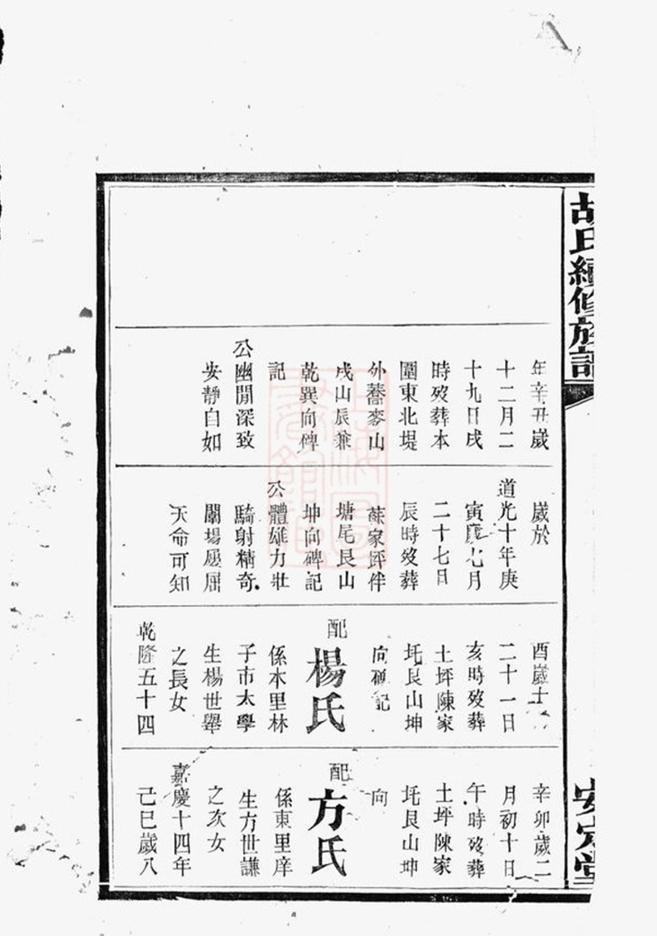 胡氏續修族譜
年辛丑歲
十二月二
十九日戌
時歿葬本
圍東北堤
外蕎麥山
戌山辰兼
乾巽向碑
記
公幽閒深致
安靜自如
歲於
道光十年庚
寅歲七月
二十七日
辰時歿葬
蘇家坪伴
塘尾艮山
坤向碑記
公體雄力壯
騎射精奇
闈場屢屈
天命可知
酉歲十
二十一日
亥時歿葬
土坪陳家
圫艮山坤
向碑記
配
楊氏
係本里林
子市太學
生楊世舉
之長女
乾隆五十四
辛卯歲二
月初十日
午時歿葬
土坪陳家
圫艮山坤
向
配
方氏
係東里庠
生方世謙
之次女
嘉慶十四年
己巳歲八
安定堂